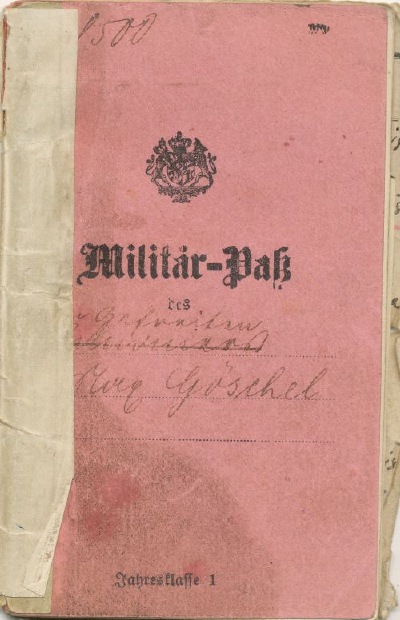 1500
Militär-Paß
des
Gefreiten
Max Göschel
Jahresklasse 1